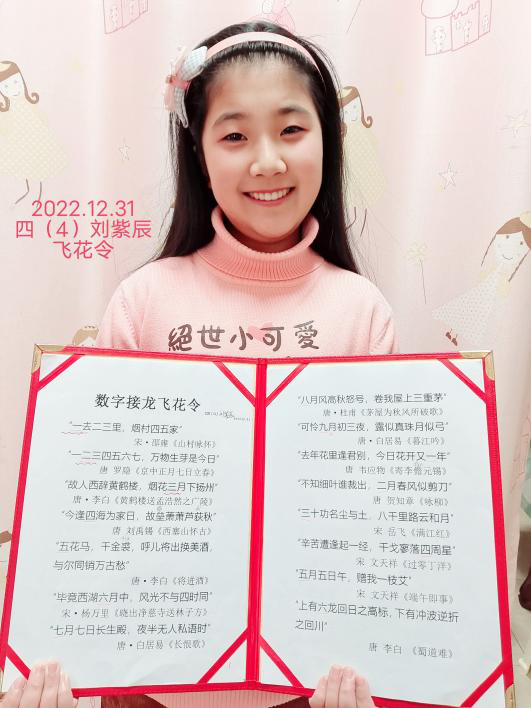 2022.12.31
四（4）刘紫辰
飞花令
絕世小可愛
数字接龙飞花令
“一去二三里，烟村四五家”
宋·邵雍《山村咏怀》
“一二三四五六七，万物生芽是今日”
唐 罗隐《京中正月七日立春》
“故人西辞黄鹤楼，烟花三月下扬州”
唐·李白《黄鹤楼送孟浩然之广陵》
“今逢四海为家日，故垒萧萧芦荻秋”
唐 刘禹锡《西塞山怀古》
“五花马，千金裘，呼儿将出换美酒，
与尔同销万古愁”
唐·李白《将进酒》
“毕竟西湖六月中，风光不与四时同”
宋·杨万里《晓出净慈寺送林子方》
“七月七日长生殿，夜半无人私语时”
唐·白居易《长恨歌》
“八月风高秋怒号，卷我屋上三重茅”
唐·杜甫《茅屋为秋风所破歌》
“可怜九月初三夜，露似真珠月似弓”
唐·白居易《暮江吟》
“去年花里逢君别，今日花开又一年”
唐 韦应物《寄李儋元锡》
“不知细叶谁裁出，二月春风似剪刀”
唐 贺知章《咏柳》
“三十功名尘与土，八千里路云和月”
宋 岳飞《满江红》
“辛苦遭逢起一经，干戈寥落四周星”
宋 文天祥《过零丁洋》
“五月五日午，赠我一枝艾”
宋 文天祥《端午即事》
“上有六龙回日之高标，下有冲波逆折
之回川”
唐 李白 《蜀道难》